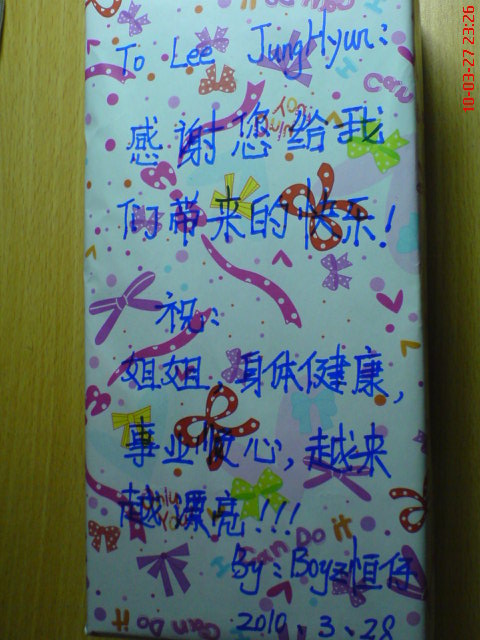 10-03-27 23:26
To Lee JungHyun:
感谢您给我
们带来的快乐!
祝:
姐姐,身体健康,
事业顺心,越来
越漂亮!!!
By:Boyz恒仔
2010.3.28
I Can Do it
Can Do it